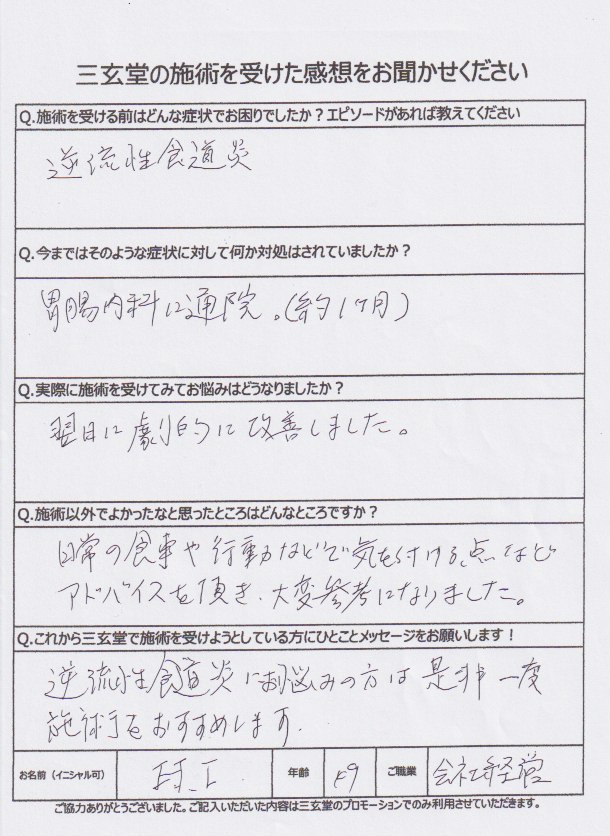 三玄堂の施術を受けた感想をお聞かせください
Q.施術を受ける前はどんな症状でお困りでしたか？エピソードがあれば教えてください
逆流性食道炎
Q.今まではそのような症状に対して何か対処はされていましたか？
胃腸内科に通院。(約1ヶ月)
Q.実際に施術を受けてみてお悩みはどうなりましたか？
翌日に劇的に改善しました。
Q.施術以外でよかったなと思ったところはどんなところですか？
日常の食事や行動などで気を付ける点など
アドバイスを頂き、大変参考になりました。
Q.これから三玄堂で施術を受けようとしている方にひとことメッセージをお願いします！
逆流性食道炎にお悩みの方は是非一度
施術をおすすめします.
お名前（イニシャル可） 年齢 49 ご職業 会社経営
ご協力ありがとうございました。ご記入いただいた内容は三玄堂のプロモーションでのみ利用させていただきます。